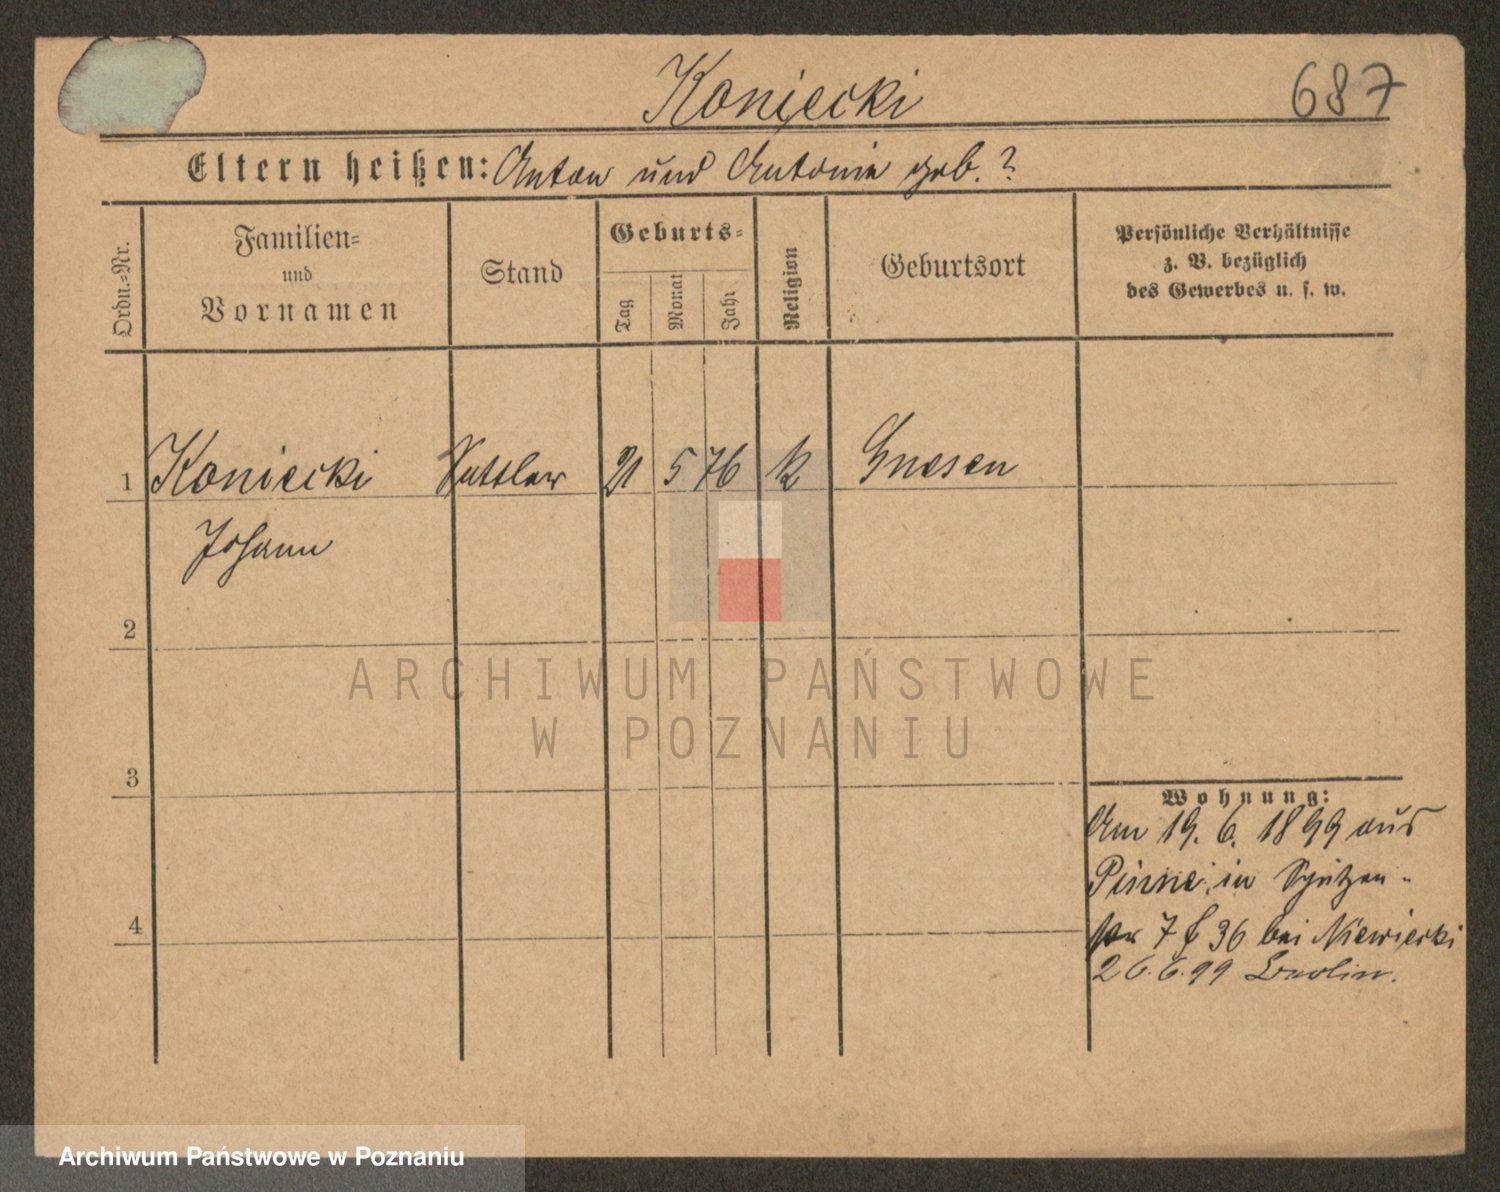 Koniecki
687
Eltern heißen: Anton und Antonie geb. ?
Ordn.=Nr.
Familien=
und
Vornamen
Stand
Geburts=
Tag
Monat
Jahr
Religion
Geburtsort
Persönliche Verhältnisse
z. B. bezüglich
des Gewerbes u. s. w.
1 Koniecki Sattler 21 5 76 k Gnesen
Johann
2
3
4
Wohnung:
Am 19. 6. 1899 aus
Pinne in
7 36 bei Niewiecki
26.6.99 Berlin.
ARCHIWUM PAŃSTWOWE
W POZNANIU
Archiwum Państwowe w Poznaniu